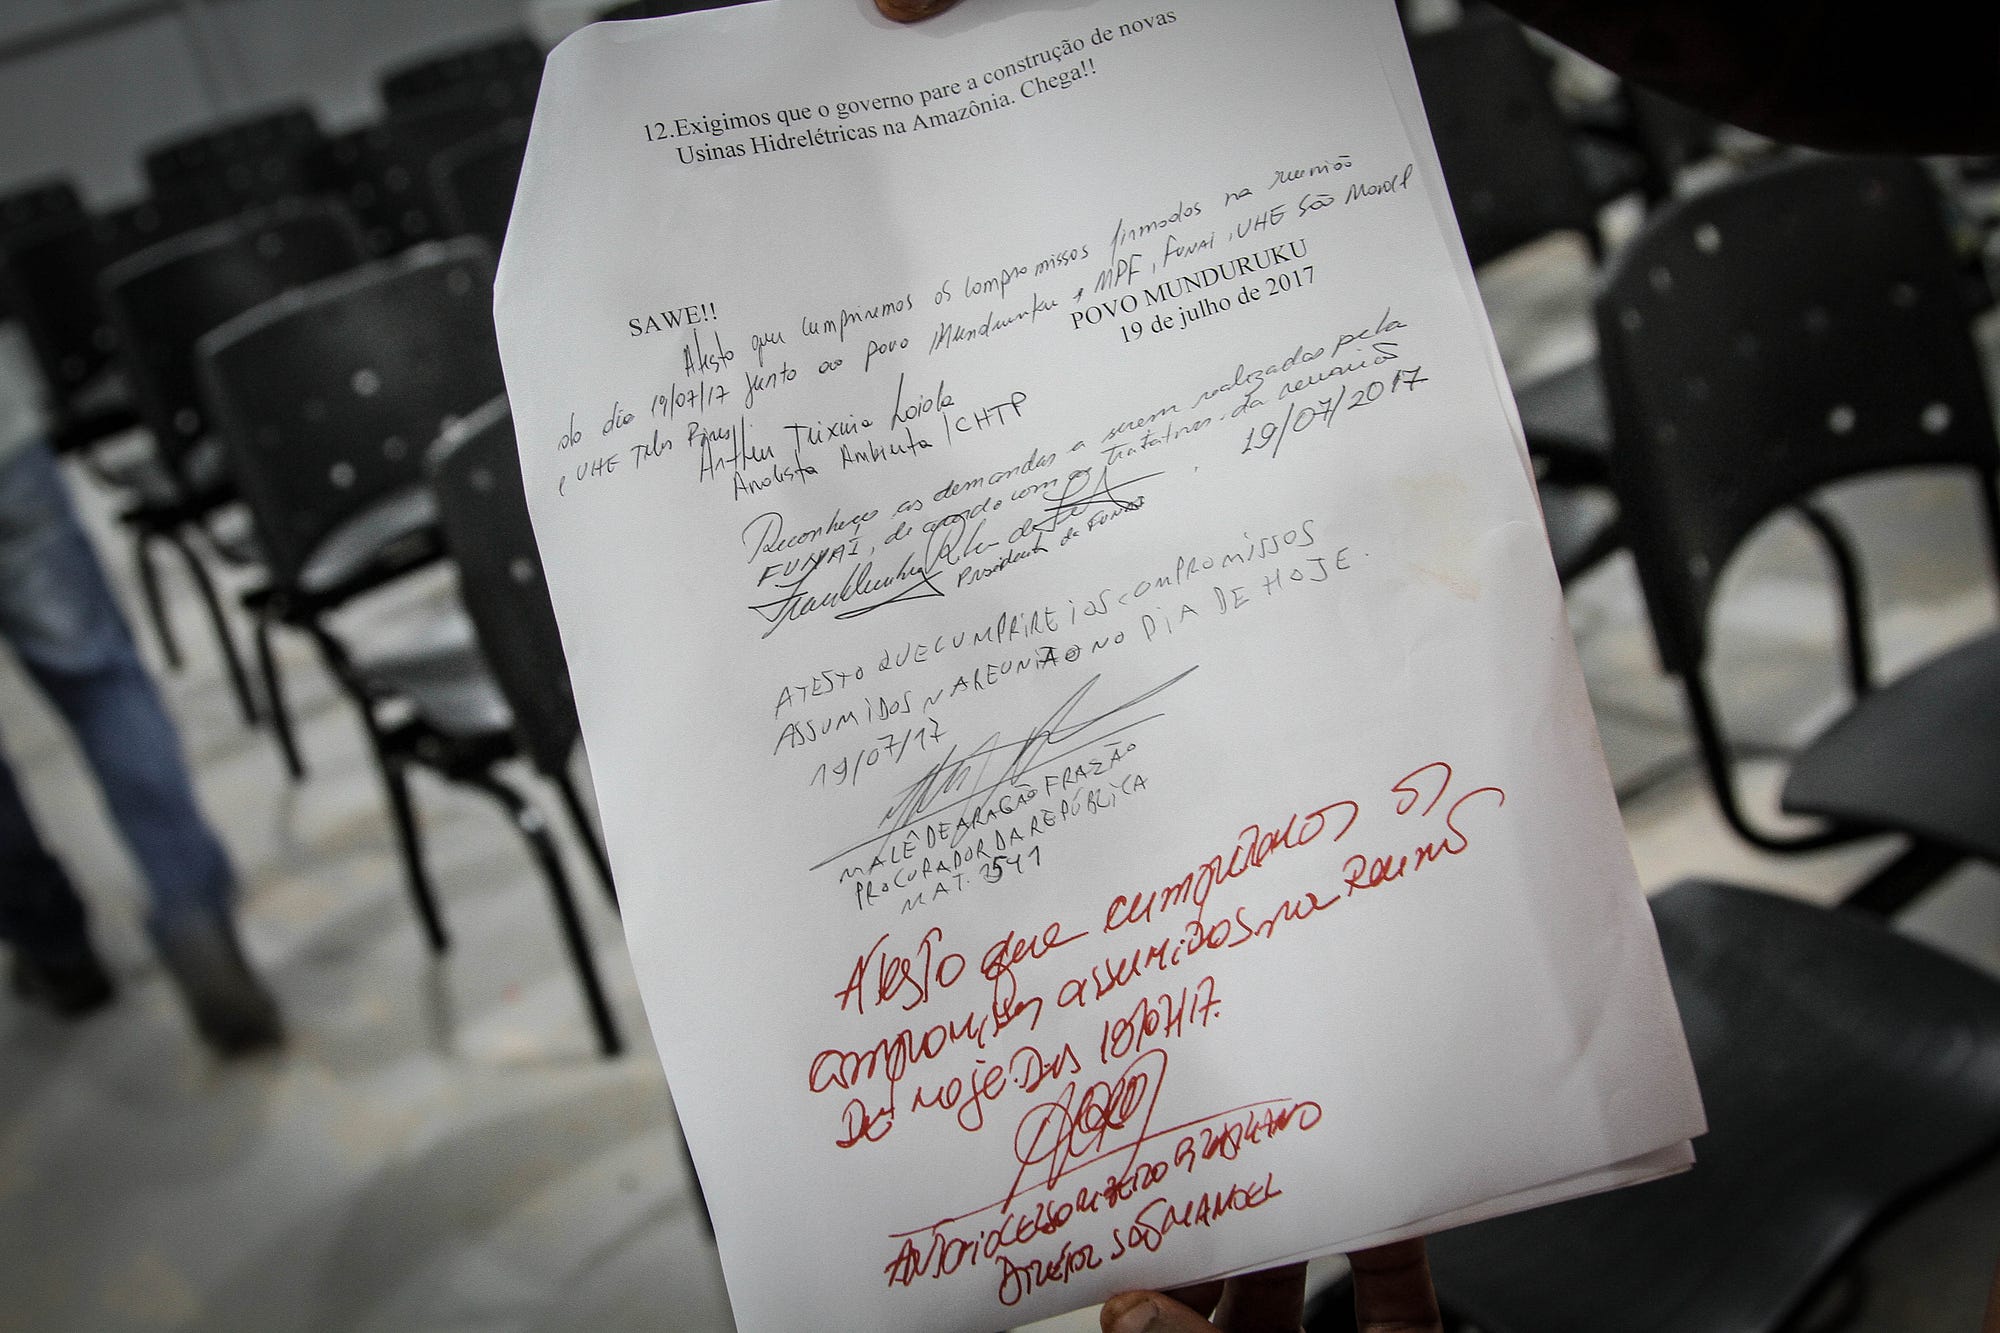 12.Exigimos que o governo pare a construção de novas
Usinas Hidrelétricas na Amazônia. Chega!!
SAWE!!
POVO MUNDURUKU
19 de julho de 2017
Atesto que cumpriremos os compromissos firmados na reunião
do dia 19/07/17 junto ao povo Munduruku e MPF, Funai, UHE São Manoel
e UHE Teles Pires
Teixeira Loiola
Analista Ambiental / CHTP
Reconheço as demandas a serem realizadas pela
FUNAI, de acordo com as tratativas da reunião
19/07/2017
Presidente da FUNAI
ATESTO QUE CUMPRIREI OS COMPROMISSOS
ASSUMIDOS NA REUNIÃO NO DIA DE HOJE.
19/07/17
MALÊ DE ARAGÃO FRAZÃO
PROCURADOR DA REPÚBLICA
MAT. 1541
Atesto que cumpriremos os
compromissos assumidos na Reunião
De hoje Dia 19/07/17.
ANTONIO CELSO RIBEIRO
DIRETOR SÃO MANOEL